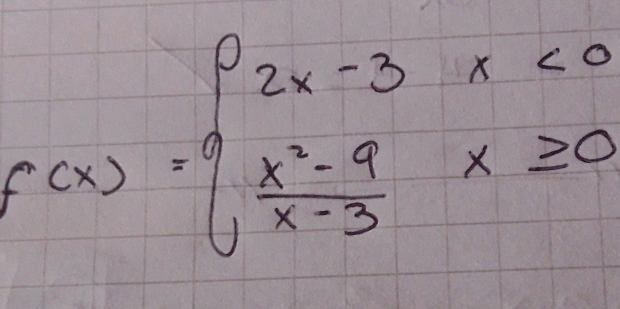 f(x) = { 2x - 3 x < 0
x² - 9 / x - 3 x ≥ 0